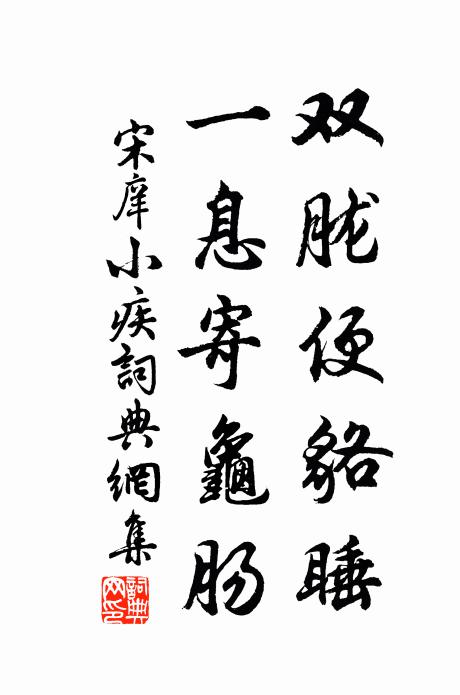 双胧便貉睡
一息寄龜肠
宋庠小疾詞典網集
詞典網印